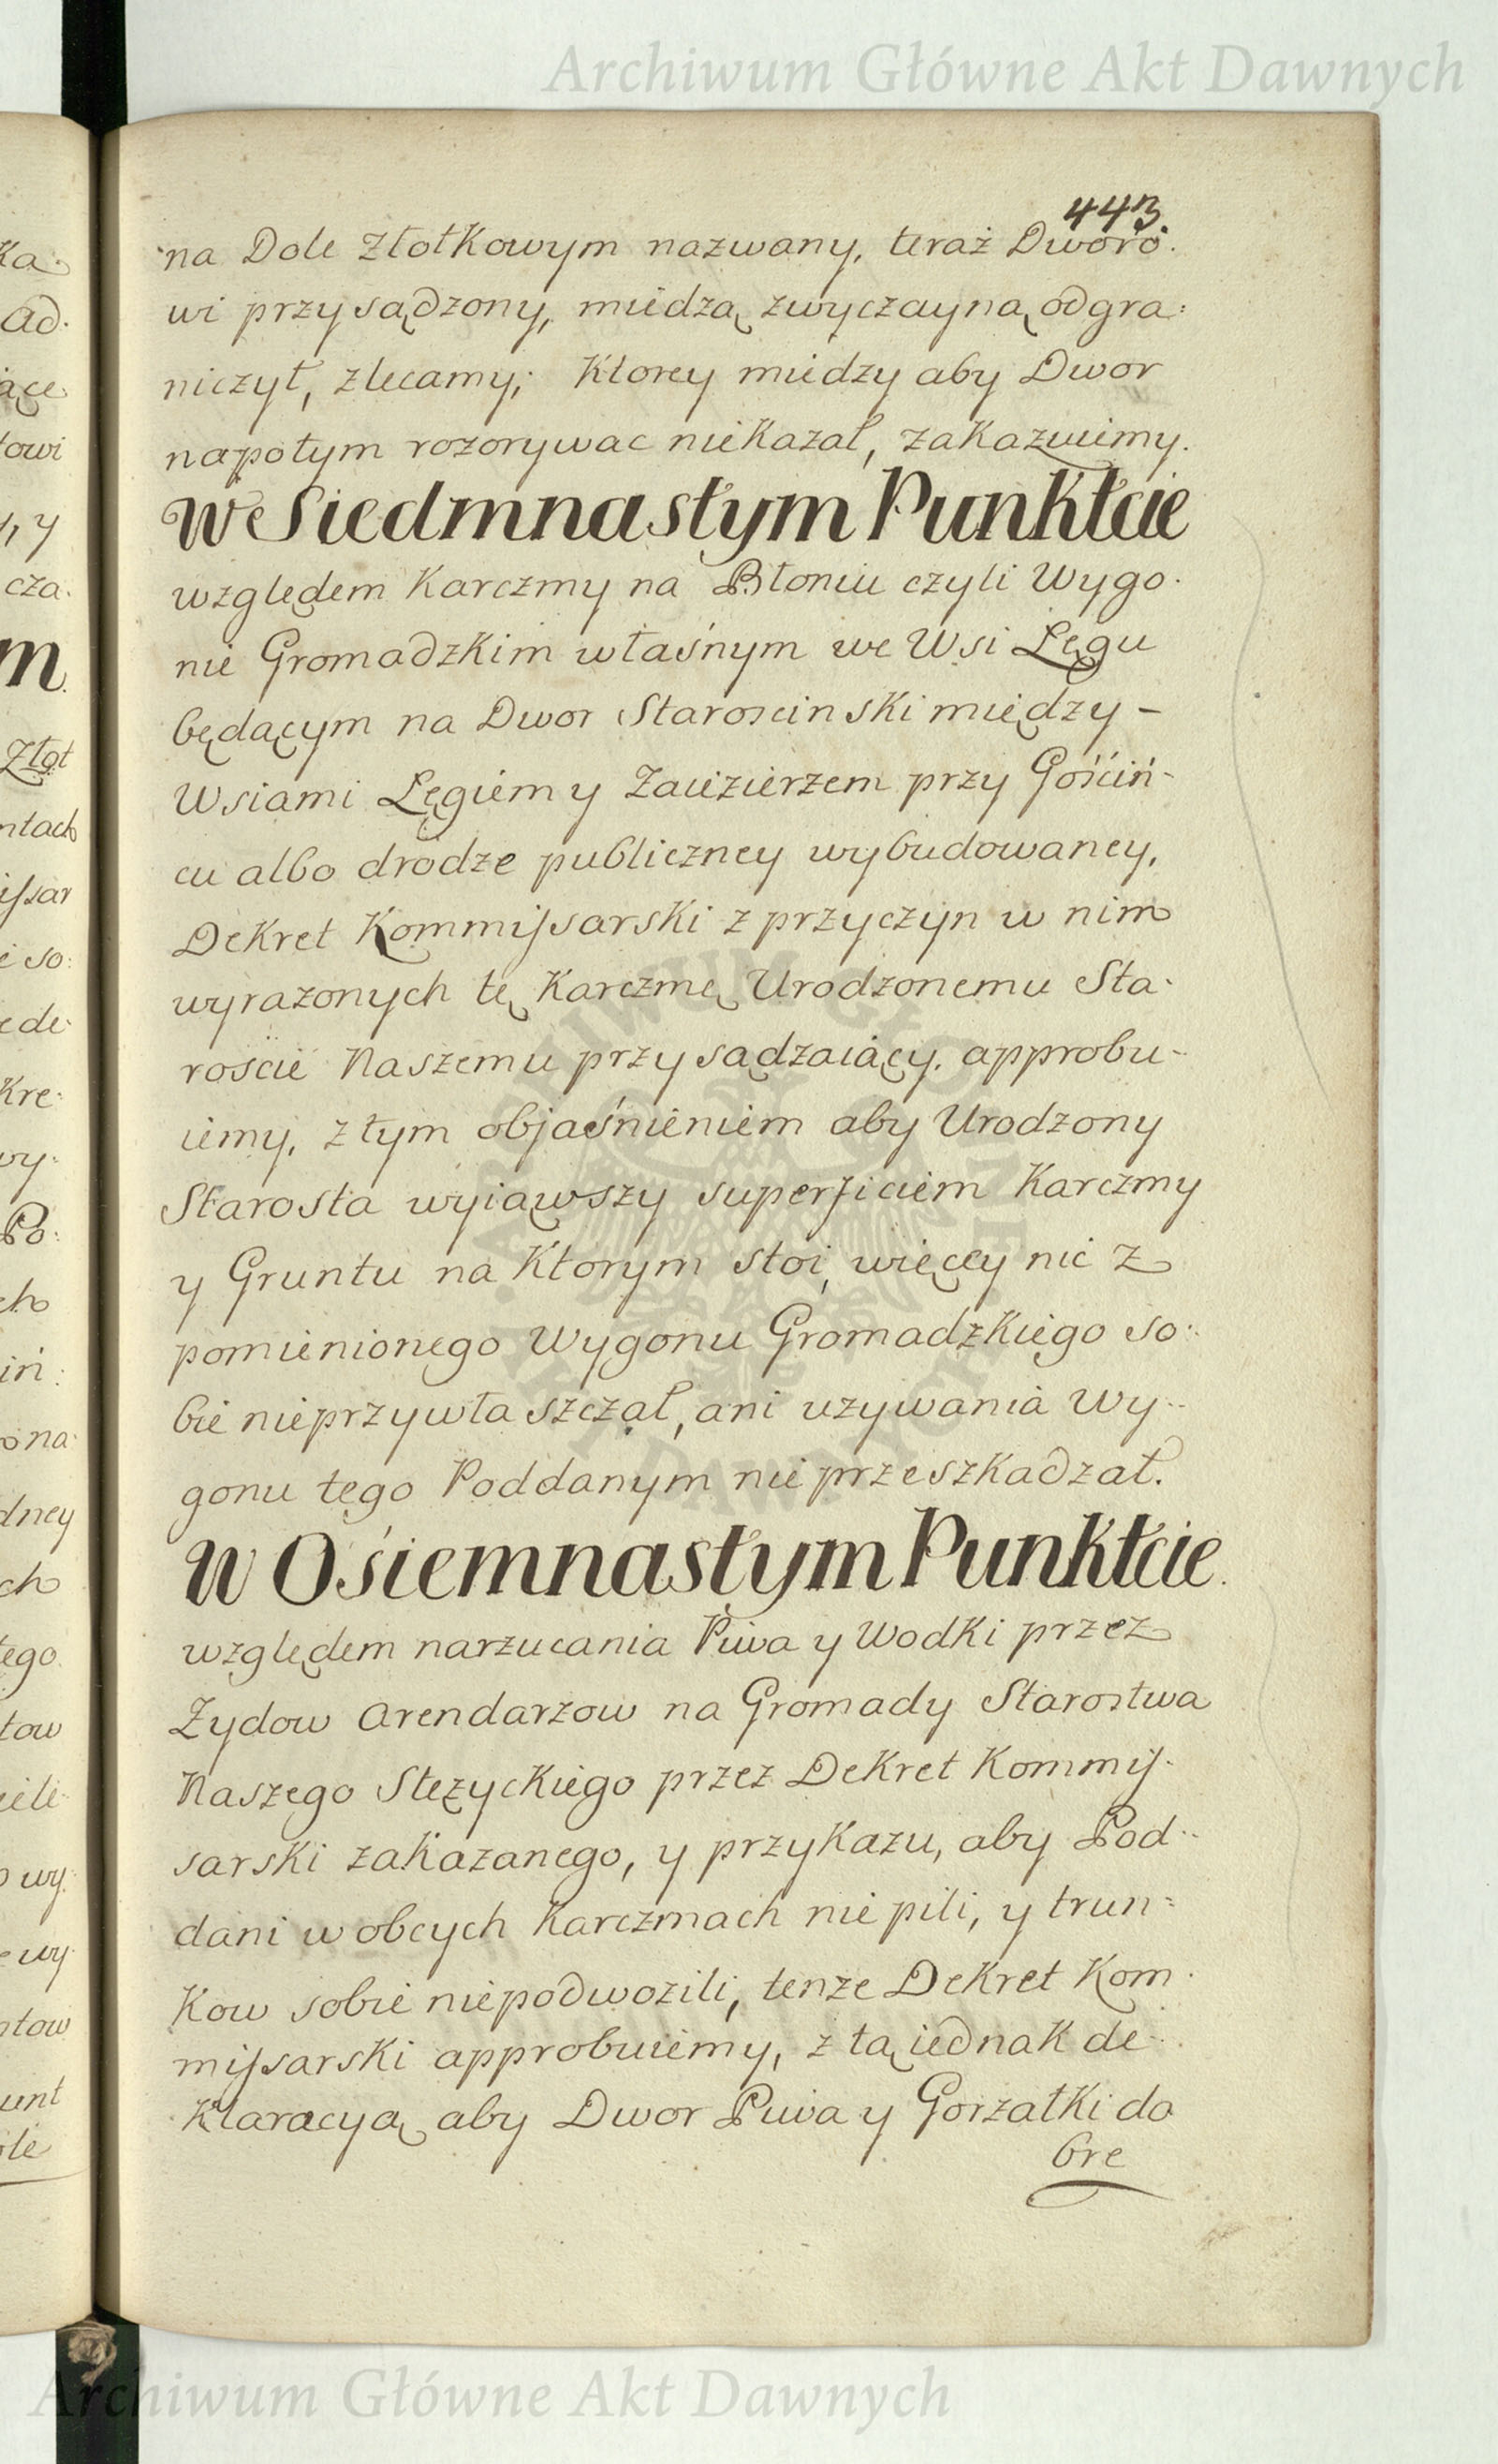 Archiwum Główne Akt Dawnych
443.
na Dole Złotkowym nazwany, teraż Dworo:
wi przysądzony, miedzą zwyczayną odgra:
niczył, zlecamy; Ktorey miedzy aby Dwor
napotym rozorywac niekazał, zakazuiemy.
We Siedmnastym Punktcie
względem Karczmy na Błoniu czyli Wygo:
nie Gromadzkim własnym we Wsi Lęgu
będącym na Dwor Staroscinski między -
Wsiami Lęgiem y Zaiezierzem przy Gościń-
cu albo drodze publiczney wybudowaney,
Dekret Kommissarski z przyczyn w nim
wyrazonych tę Karczmę Urodzonemu Sta-
roście Naszemu przysądzaiący, approbu-
iemy, z tym objaśnieniem aby Urodzony
Starosta wyiąwszy superficiem Karczmy
y Gruntu na Ktorym stoi, więcey nic z
pomienionego Wygonu Gromadzkiego so:
bie nieprzywłaszczał, ani uzywania Wy-
gonu tego Poddanym nie przeszkadzał.
W Ośiemnastym Punktcie.
względem narzucania Piwa y Wodki przez
Zydow Arendarzow na Gromady Starostwa
Naszego Stezyckiego przez Dekret Kommis-
sarski zakazanego, y przykazu, aby Pod-
dani w obcych Karczmach nie pili, y trun-
Kow sobie niepodwozili, tenze Dekret Kom-
missarski approbuiemy, z tą iednak de-
Klaracyą aby Dwor Piwa y Gorzałki do
bre
ka:
Ad:
iące
towi
y, y
cza:
m.
Złot
ntach
issar
i so:
ede:
Kre:
wy-
Po:
ch
iń:
ona
dney
ch
tego
tow
iele
wy:
wy
ntow
unt
le
ARCHIWUM GŁÓWNE
AKT DAWNYCH
Archiwum Główne Akt Dawnych